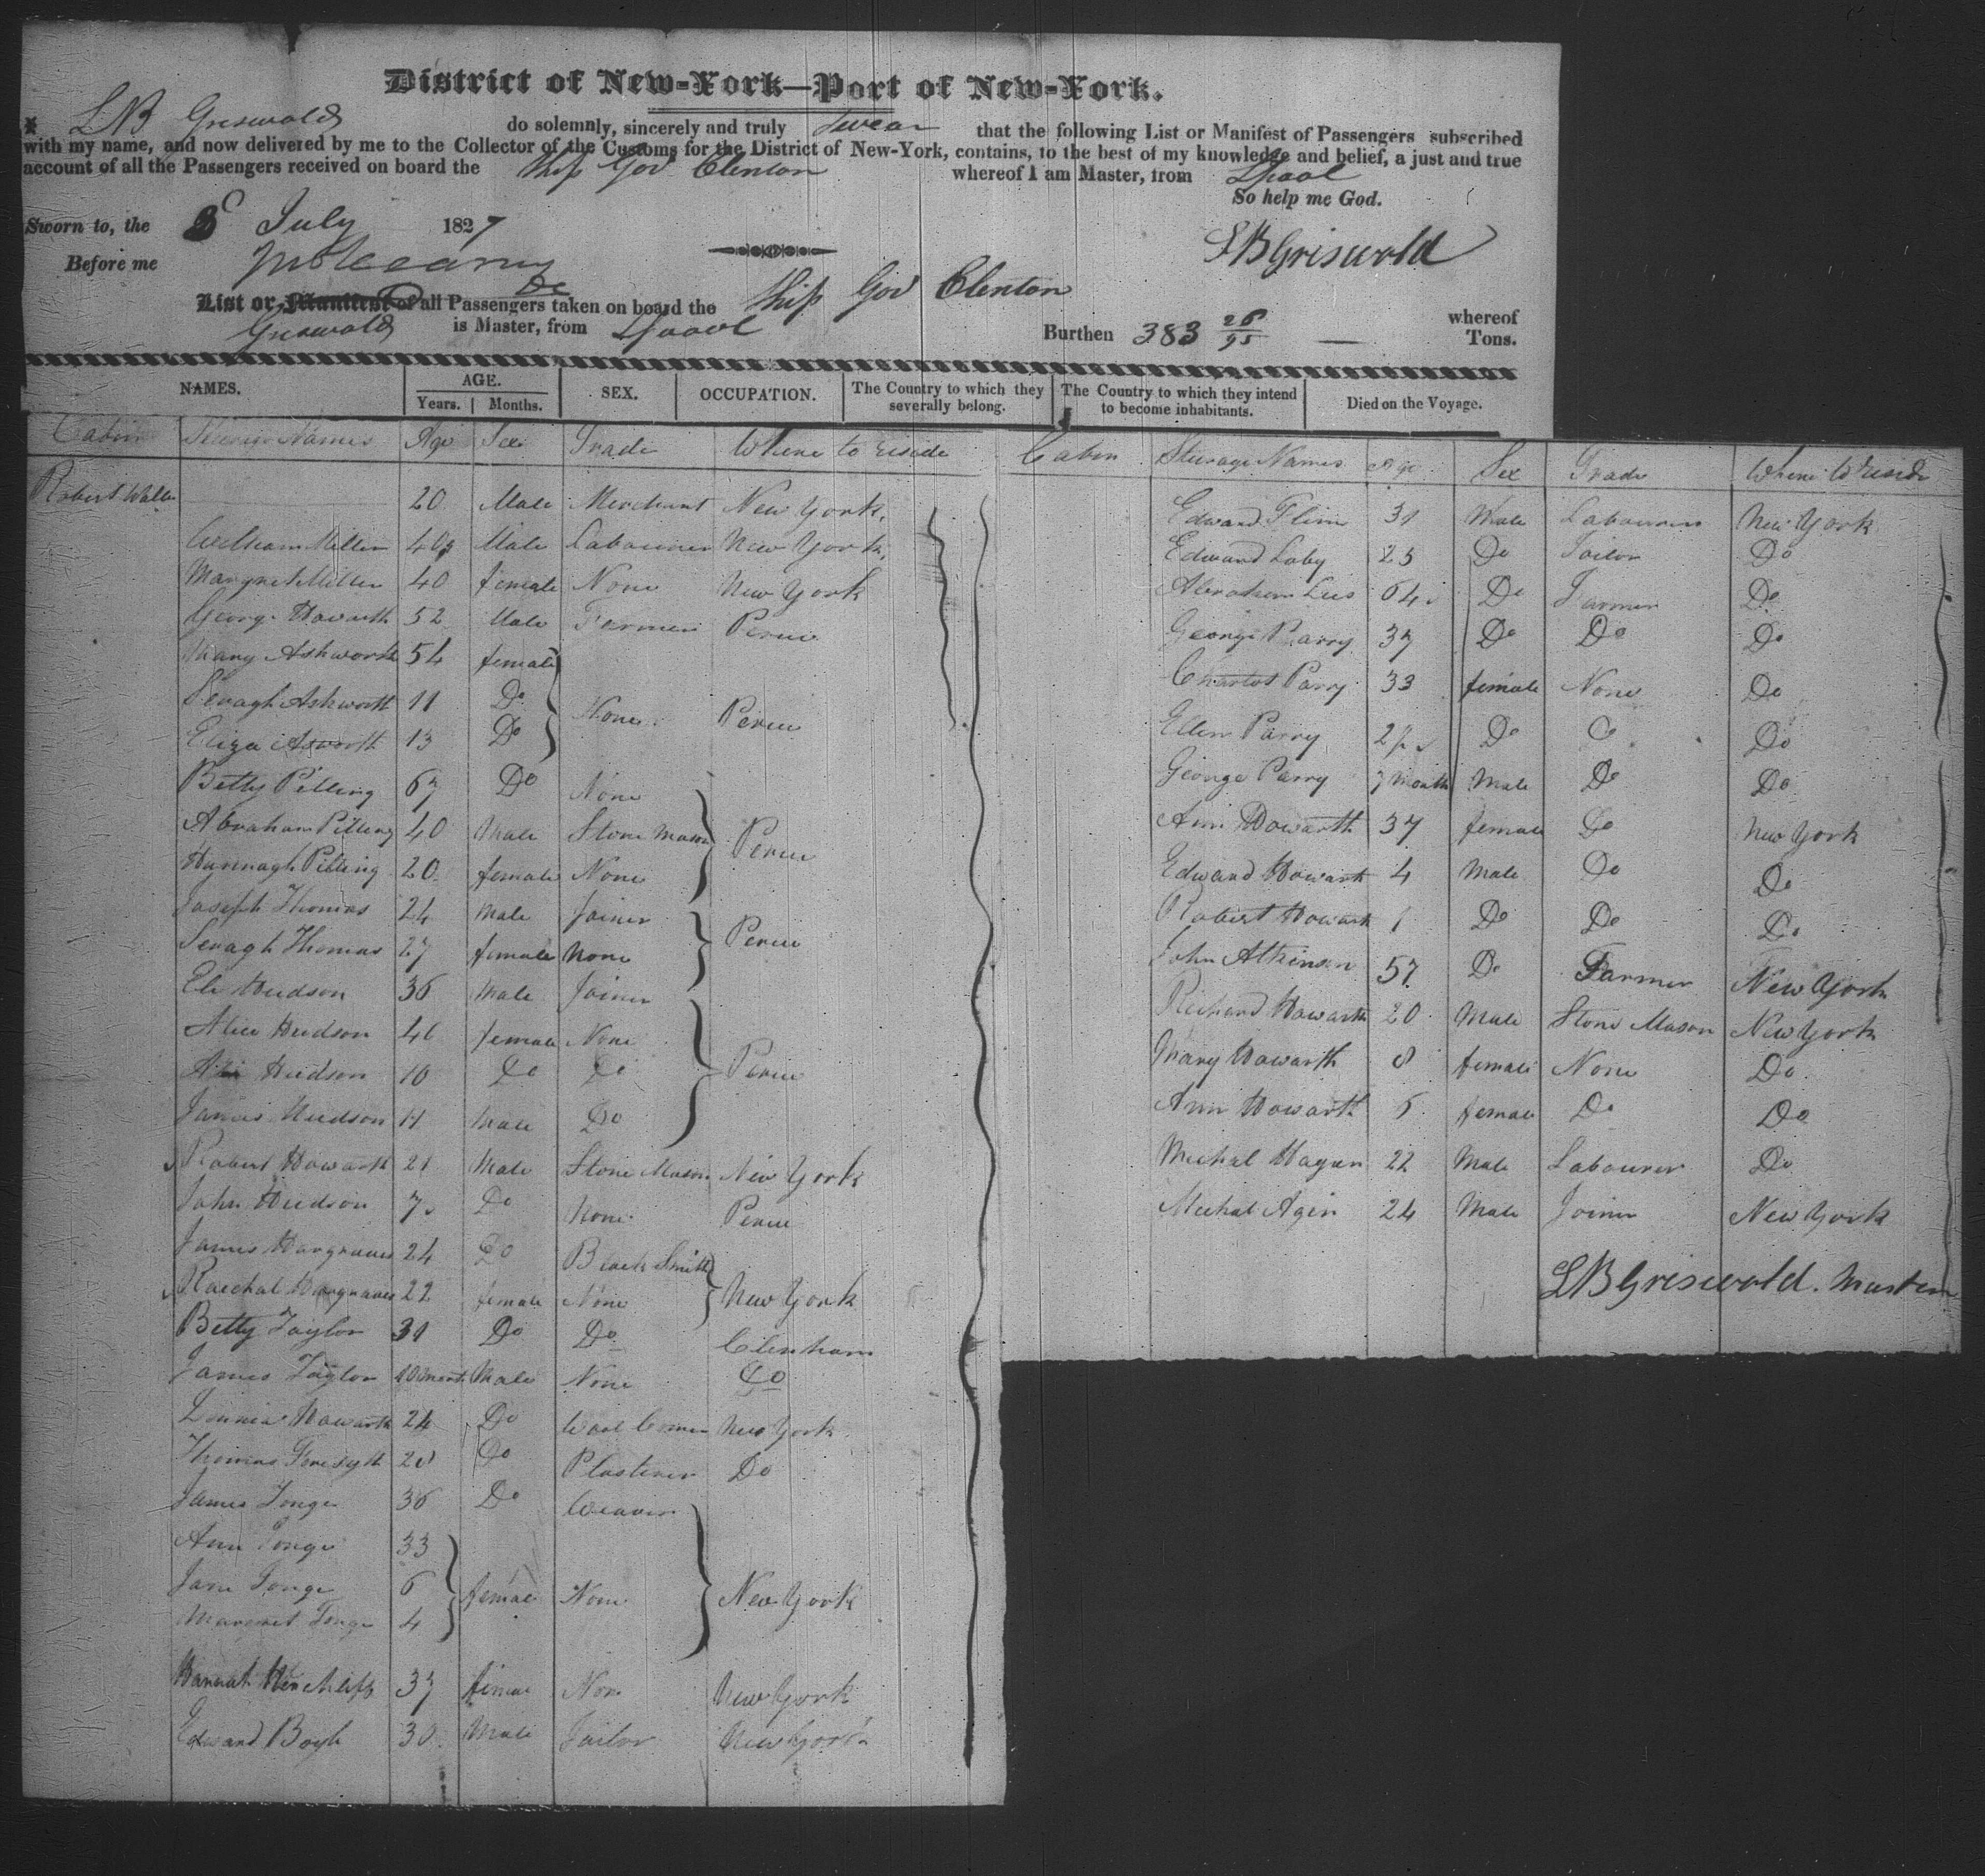 District of New-York—Port of New-York.
L B Griswold do solemnly, sincerely and truly swear that the following List or Manifest of Passengers subscribed
with my name, and now delivered by me to the Collector of the Customs for the District of New-York, contains, to the best of my knowledge and belief, a just and true
account of all the Passengers received on board the Ship Gov Clenton whereof I am Master, from Lpool
So help me God.
Sworn to, the 3d July 1827
Before me
L B Griswold
List or Manifest of all Passengers taken on board the Ship Gov Clenton whereof
Griswold is Master, from Lpool Burthen 383 26/95 Tons.
NAMES. AGE. SEX. OCCUPATION. The Country to which they severally belong. The Country to which they intend to become inhabitants. Died on the Voyage.
Years. Months.
Cabin Steerage Names Age Sex Trade Where to reside
Robert 20 Male Merchant New York
William Miller 40 Male Labourer New York
Margret Miller 40 female None New York
George Howarth 52 Male Farmer Perue
Mary Ashworth 54 female
Seragh Ashworth 11 Do None Perue
Eliza Asworth 13 Do
Betty Pilling 67 Do None
Abraham Pilling 40 Male Stone Mason Perue
Hannagh Pilling 20 female None
Joseph Thomas 24 Male Joiner Perue
Seragh Thomas 27 female None
Eli Hudson 36 Male Joiner
Alice Hudson 40 female None
Hudson 10 Do Do Perue
James Hudson 11 Male Do
Robert Howarth 21 Male Stone Mason New York
John Hudson 7 Do None Perue
James Hargraves 24 Do Black Smith
Raechal Hargraves 22 female None New York
Betty Taylor 31 Do Do Clenham
James Taylor 10 Month Male None Do
Howarth 24 Do Wool Comer New York
Thomas Foresyth 20 Do Plasterer Do
James Tonge 36 Do Weaver
Ann Tonge 33
Jane Tonge 6 female None New York
Margret Tonge 4
Hannah 37 female Non New York
Edward Boyle 30 Male Tailor New York
Cabin Steerage Names Age Sex Trade Where to reside
Edward Flinn 31 Male Labourer New York
Edward Laby 25 Do Tailor Do
Abraham Lees 64 Do Farmer Do
George Parry 37 Do Do Do
Charlot Parry 33 female None Do
Ellen Parry 2 Do Do Do
George Parry 7 month Male Do Do
Ann Howarth 37 female Do New York
Edward Howarth 4 Male Do Do
Robert Howarth 1 Do Do Do
John Atkinson 57 Do Farmer New York
Richard Howarth 20 Male Stone Mason New York
Mary Howarth 8 female None Do
Ann Howarth 6 female Do Do
Michal Hagan 22 Male Labourer Do
Michal Agin 24 Male Joiner New York
L B Griswold. Master